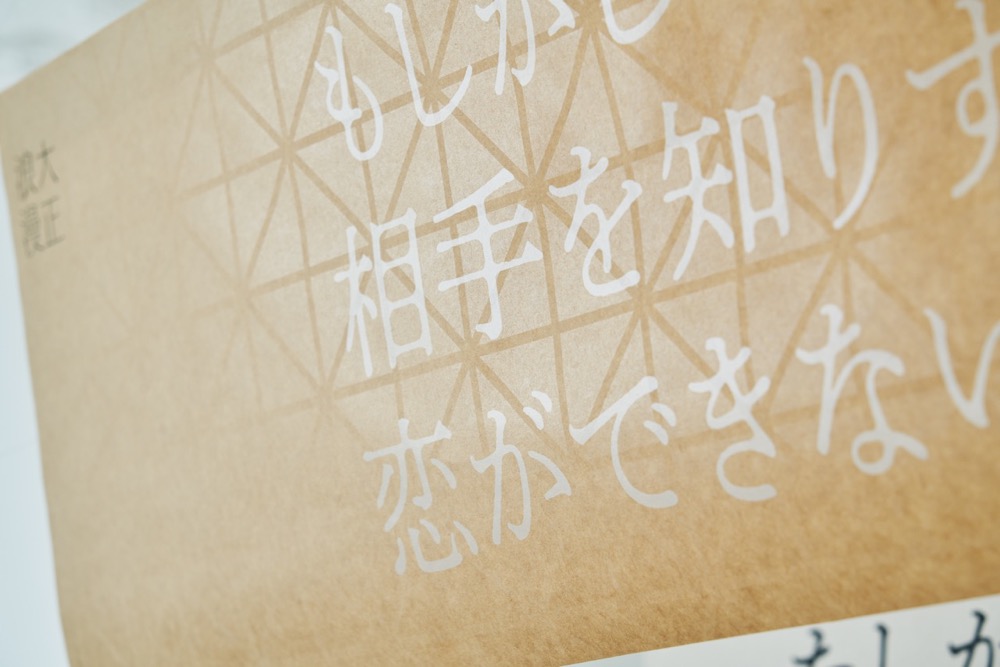 もしかし
相手を知りす
恋ができない
大正
浪漫
もしか